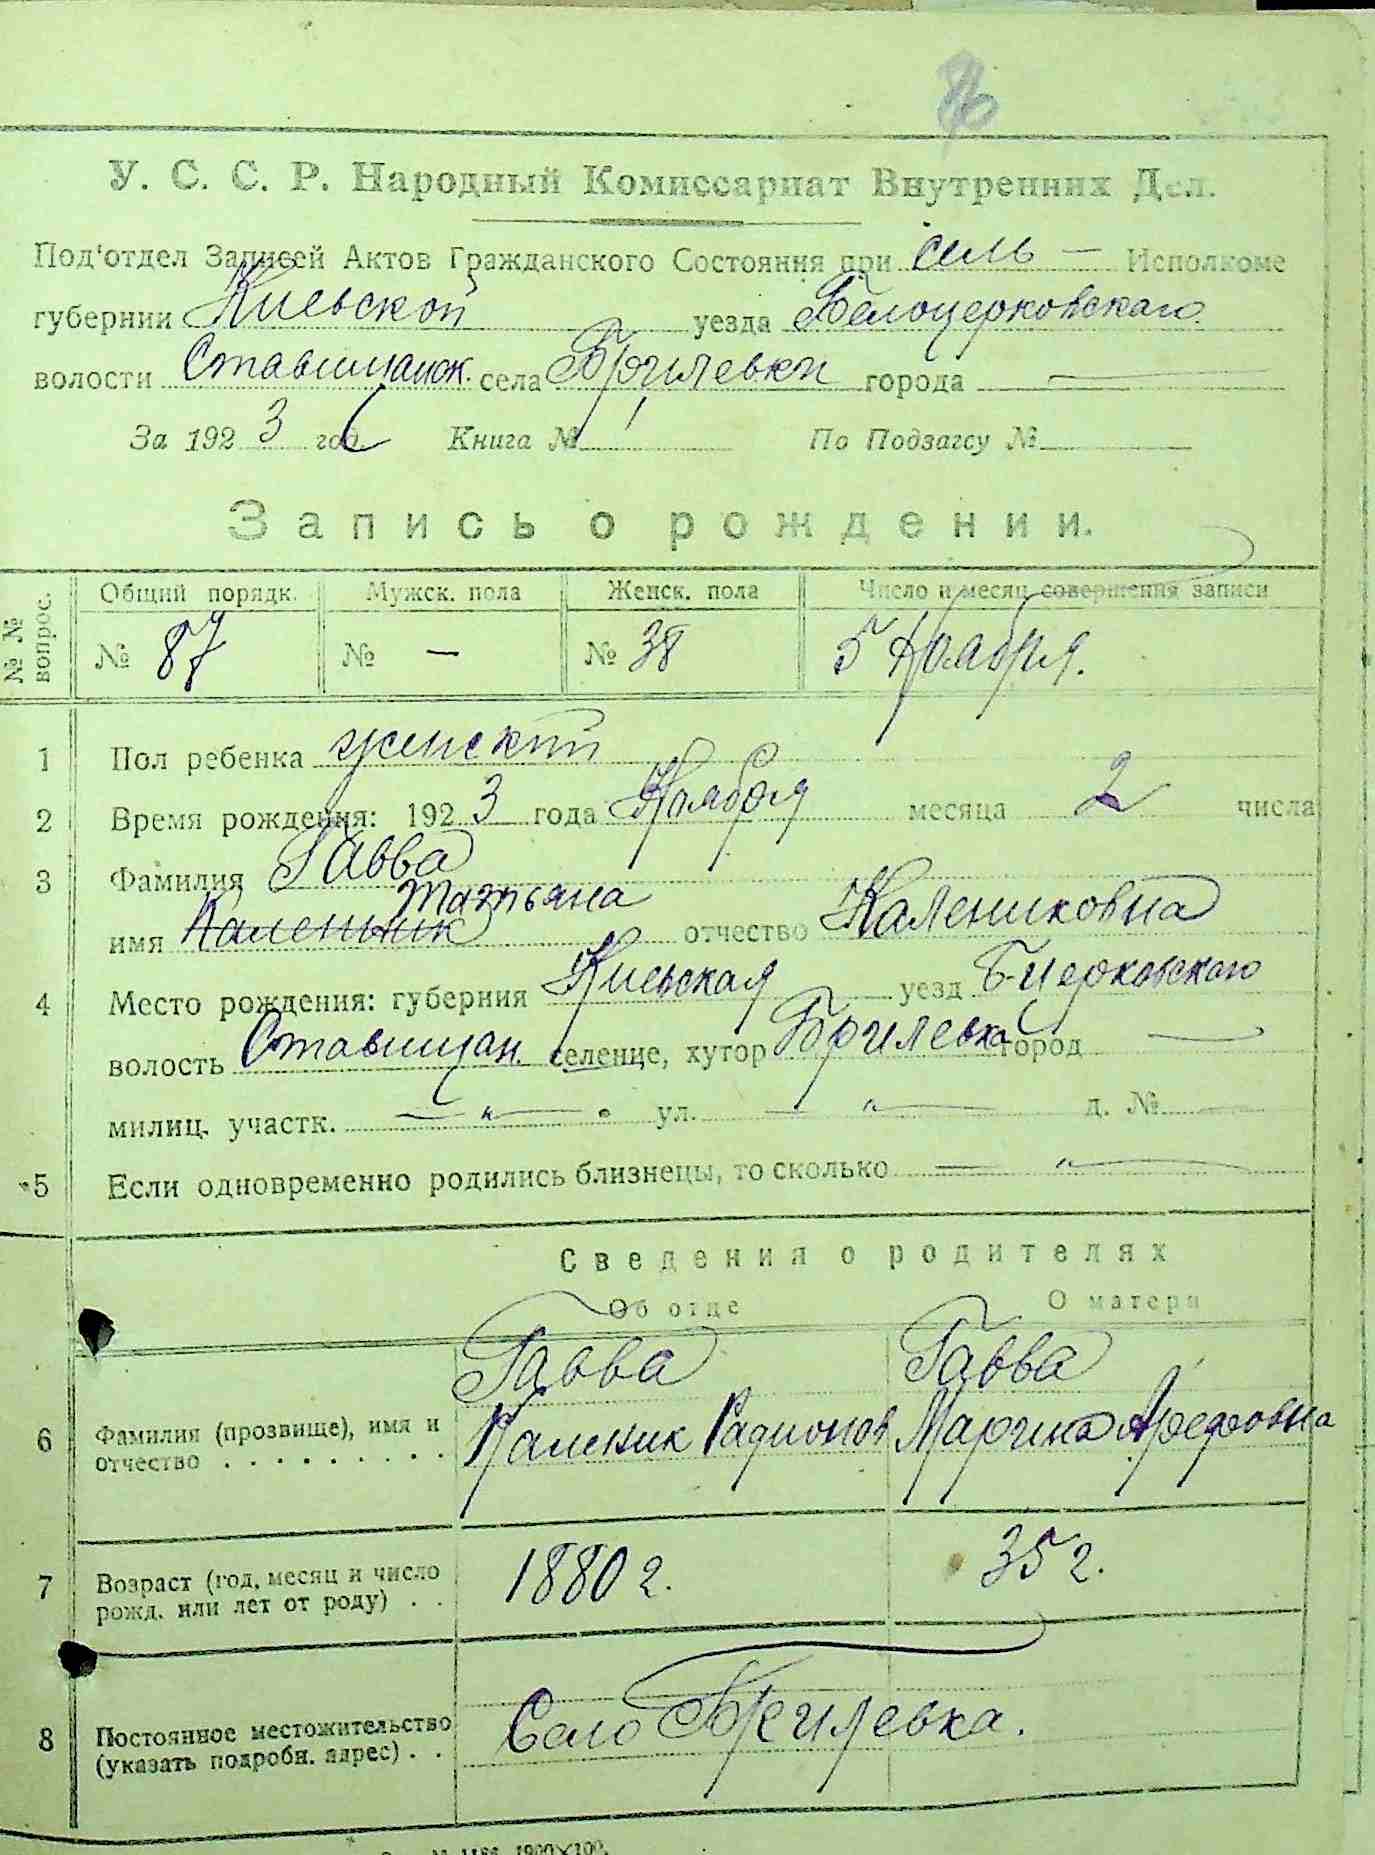 86
У. С. С. Р. Народный Комиссариат Внутренних Дел.
Под'отдел Записей Актов Гражданского Состояния при сель — Исполкоме
губернии Киевской уезда Белоцерковскаго
волости Ставищанск. села Брилевки города —
За 1923 год Книга № По Подзагсу №
Запись о рождении.
№ № вопрос. Общий порядк. Мужск. пола Женск. пола Число и месяц совершения записи
№ 87 № — № 38 5 Ноября.
1 Пол ребенка женский
2 Время рождения: 1923 года Ноября месяца 2 числа
3 Фамилия Гавва
Татьяна
имя Каленьник отчество Калениковна
4 Место рождения: губерния Киевская уезд Б-Церковскаго
волость Ставищан. селение, хутор Брилевка город —
милиц. участк. — " — ул. — " — д. № —
5 Если одновременно родились близнецы, то сколько — " —
Сведения о родителях
Об отце О матери
Гавва Гавва
6 Фамилия (прозвище), имя и Каленик Радионов Марина Арефовна
отчество . . . . . . . . .
7 Возраст (год, месяц и число 1880 г. 35 г.
рожд. или лет от роду) . .
8 Постоянное местожительство Село Брилевка.
(указать подробн. адрес) . .